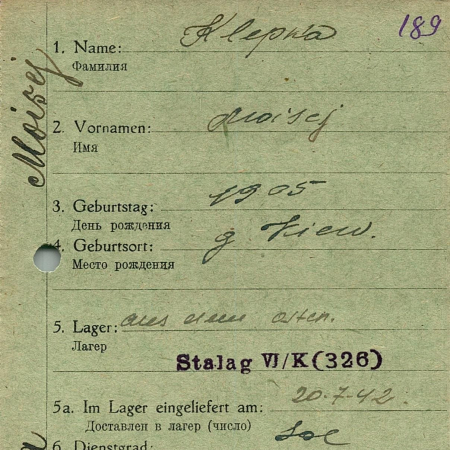 189
1. Name: Klepka
Фамилия
Moisej
2. Vornamen: Moisej
Имя
3. Geburtstag: 1905
День рождения
4. Geburtsort: g. Kiew.
Место рождения
5. Lager: aus dem Osten.
Лагер
Stalag VI/K (326)
5a. Im Lager eingeliefert am: 20-7-42.
Доставлен в лагер (число)
6. Dienstgrad: Sol